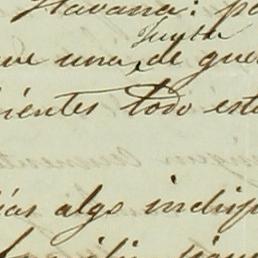 Havana: po
Junta
ue una de gue
ientes todo est
ias algo indisp